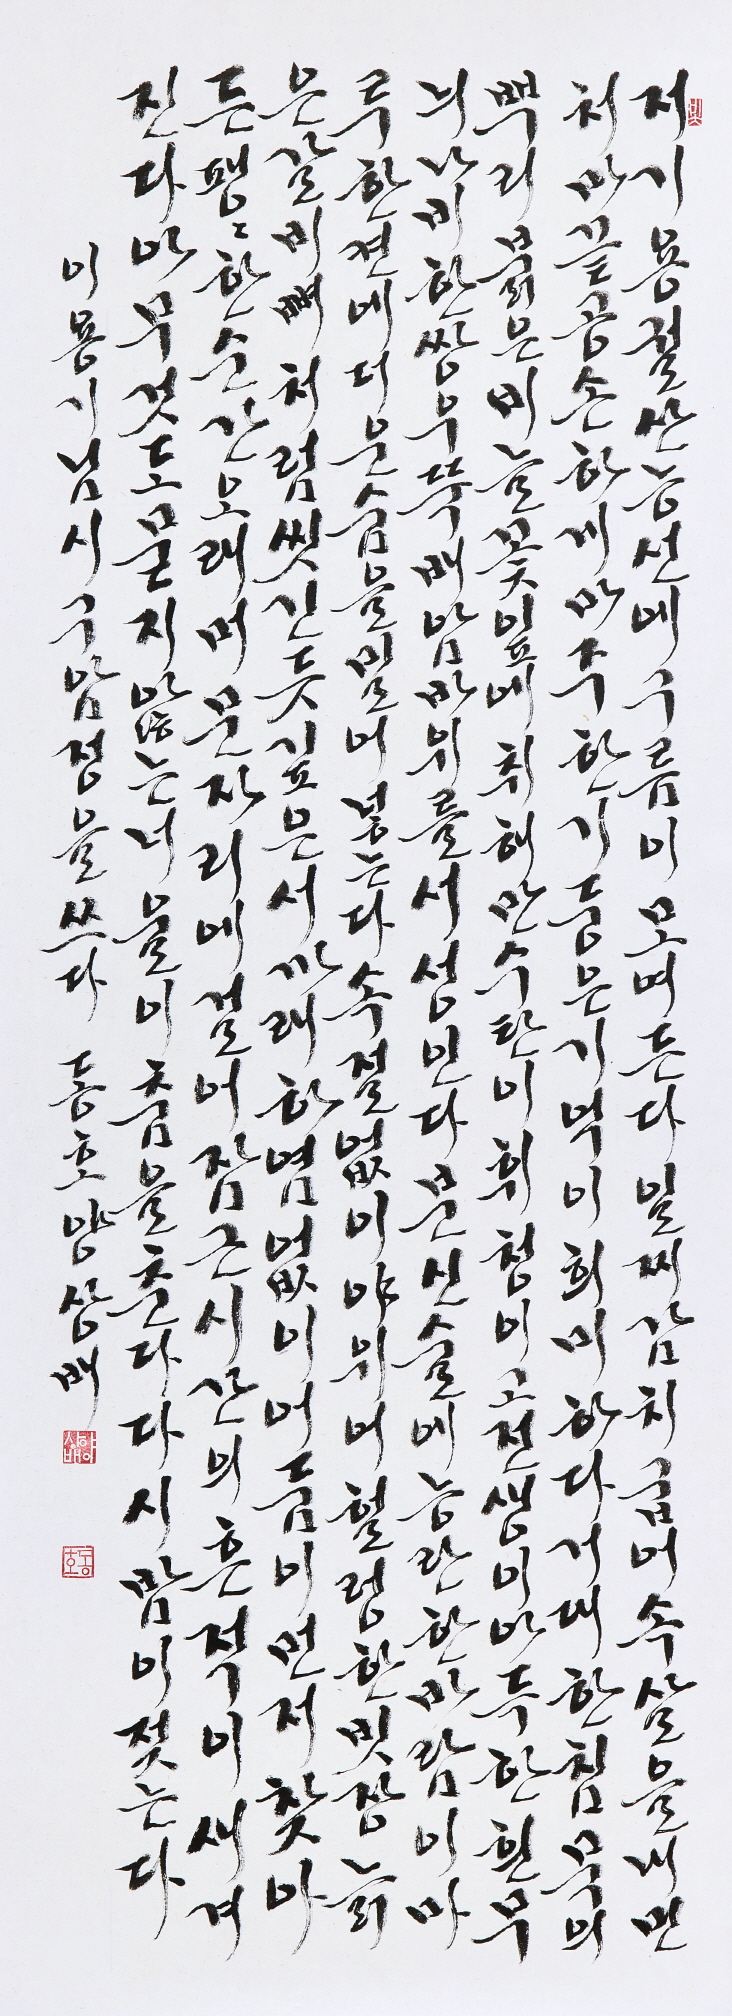 저기용궐산능선에구름이모여든다일찌감치굽어속살을내민
처마끝공손하게마주한기둥은기억이희미하다거대한침묵의
뿌리붉은비늘꽃잎에취해만수탄이휘청이고전생이아득한흰무
늬나비한쌍우뚝배암바위를서성인다문신술에능란한바람이마
루한켠에더운숨을밀어넣는다속절없이야위어헐렁한빗장늙
은갈비뼈처럼씻긴듯깊은서까래하염없이어둠이먼저찾아
든팽팽한순간오래머문자리에걸어잠근시간의흔적이새겨
진다아무것도묻지않는너울이춤을춘다다시밤이젖는다
이용기님시구암정을쓰다 동호양상배
양상배
동호